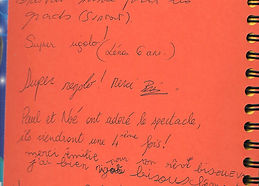 grands (Support).
Super rigolo! (Léna 6 ans.)
Super rigolo! Merci
Paul et Noé ont adoré le spectacle,
ils viendront une 4ème fois!
merci Emilie pour ton rêve bisous
j'ai bien rigolé bisous